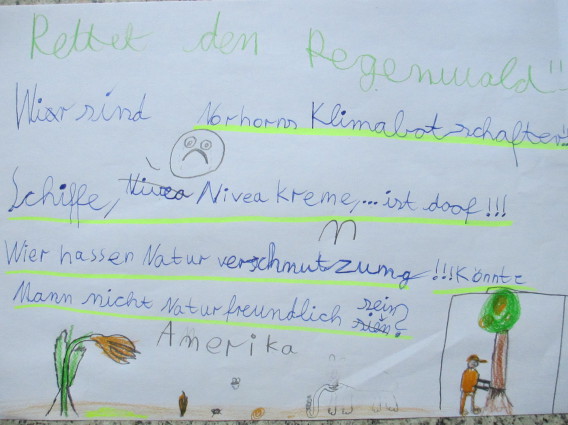 Rettet den Regenwald!!
Wier sind Norhorns Klimabotschafter!!
Schiffe, Nivea Kreme,... ist doof!!!
Wier hassen Natur verschmutzung!!! Könnte
Mann nicht Naturfreundlich sein?
Amerika